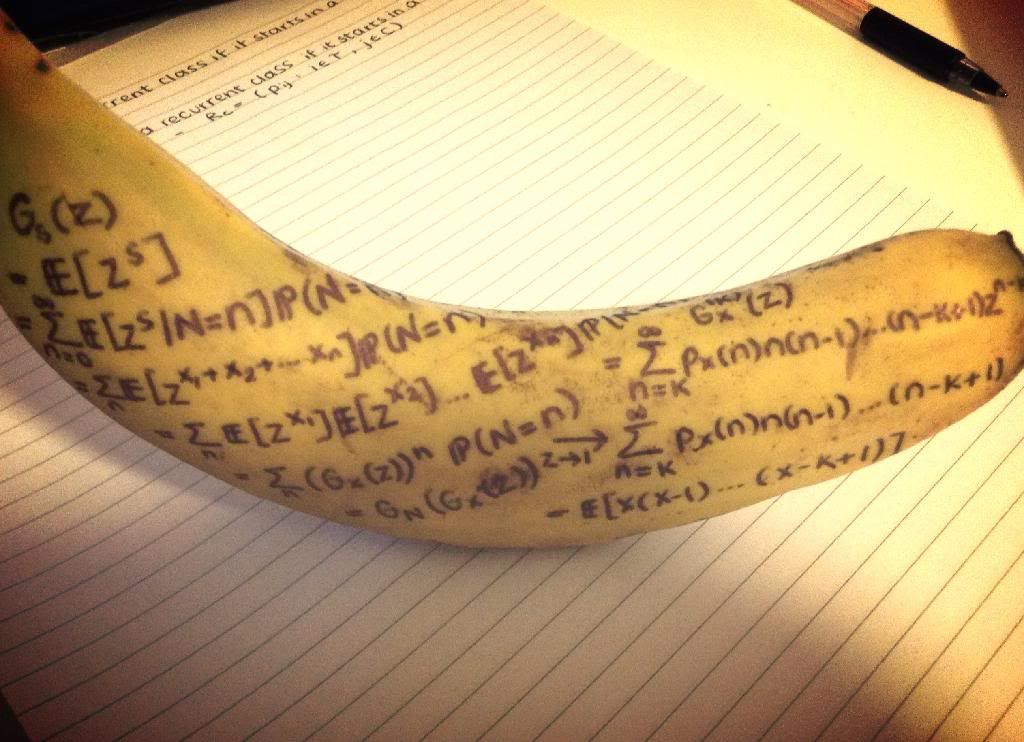 rent class if it starts in a
a recurrent class if it starts in a
- Rc = (Pij, i∈T, j∈C)
G_S(z)
= E[z^S]
= ∑_{n=0}^∞ E[z^S|N=n]P(N=n)
= ∑_n E[z^{X_1+X_2+...X_n}]P(N=n)
= ∑_n E[z^{X_1}]E[z^{X_2}]...E[z^{X_n}]P(N=
= ∑_n (G_X(z))^n P(N=n)
= G_N(G_X(z))
G_X^{(K)}(z)
= ∑_{n=K}^∞ P_X(n)n(n-1)...(n-K+1)z^{n-K}
z→1 → ∑_{n=K}^∞ P_X(n)n(n-1)...(n-K+1)
= E[X(X-1)...(X-K+1)]